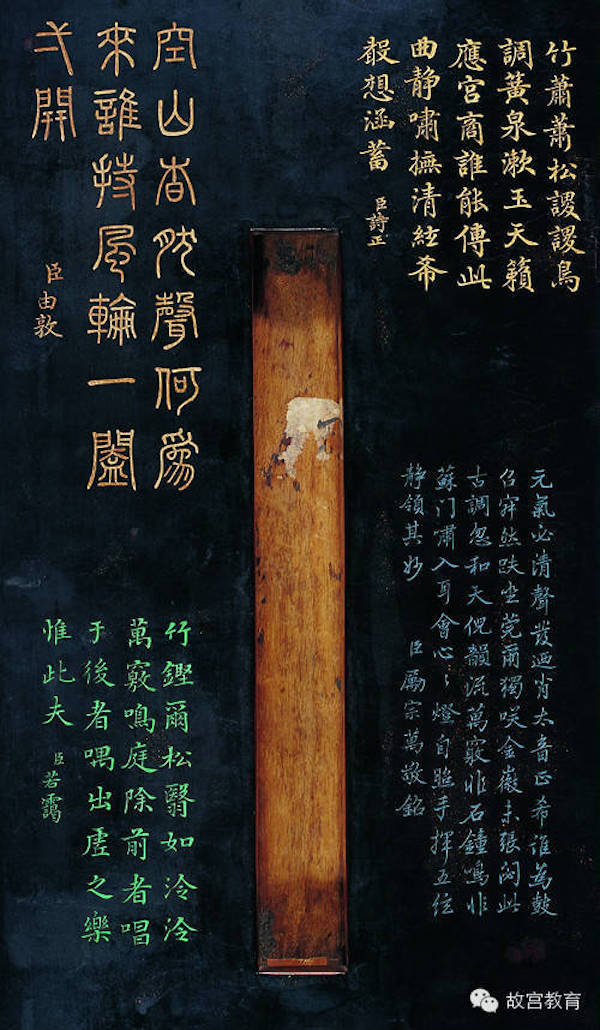 竹蕭蕭松謖謖鳥
調簧泉漱玉天籟
應宮商誰能傳此
曲靜嘯撫清絃希
殸想涵蓄 臣詩正
空山杳肰聲何為
來誰持風輪一闔
弌開
臣由敦
元氣必清聲發迺肖大音正希誰為鼓
召窅然趺坐莞爾獨咲金徽未張聞此
古調忽和天倪韻流萬竅非石鐘鳴非
蘇门肅入耳會心々燈自照手揮五絃
靜領其妙 臣厲宗萬敬銘
竹鏗爾松翳如泠泠
萬竅鳴庭除前者唱
于後者喁出虛之樂
惟此夫 臣若靄
故宫教育